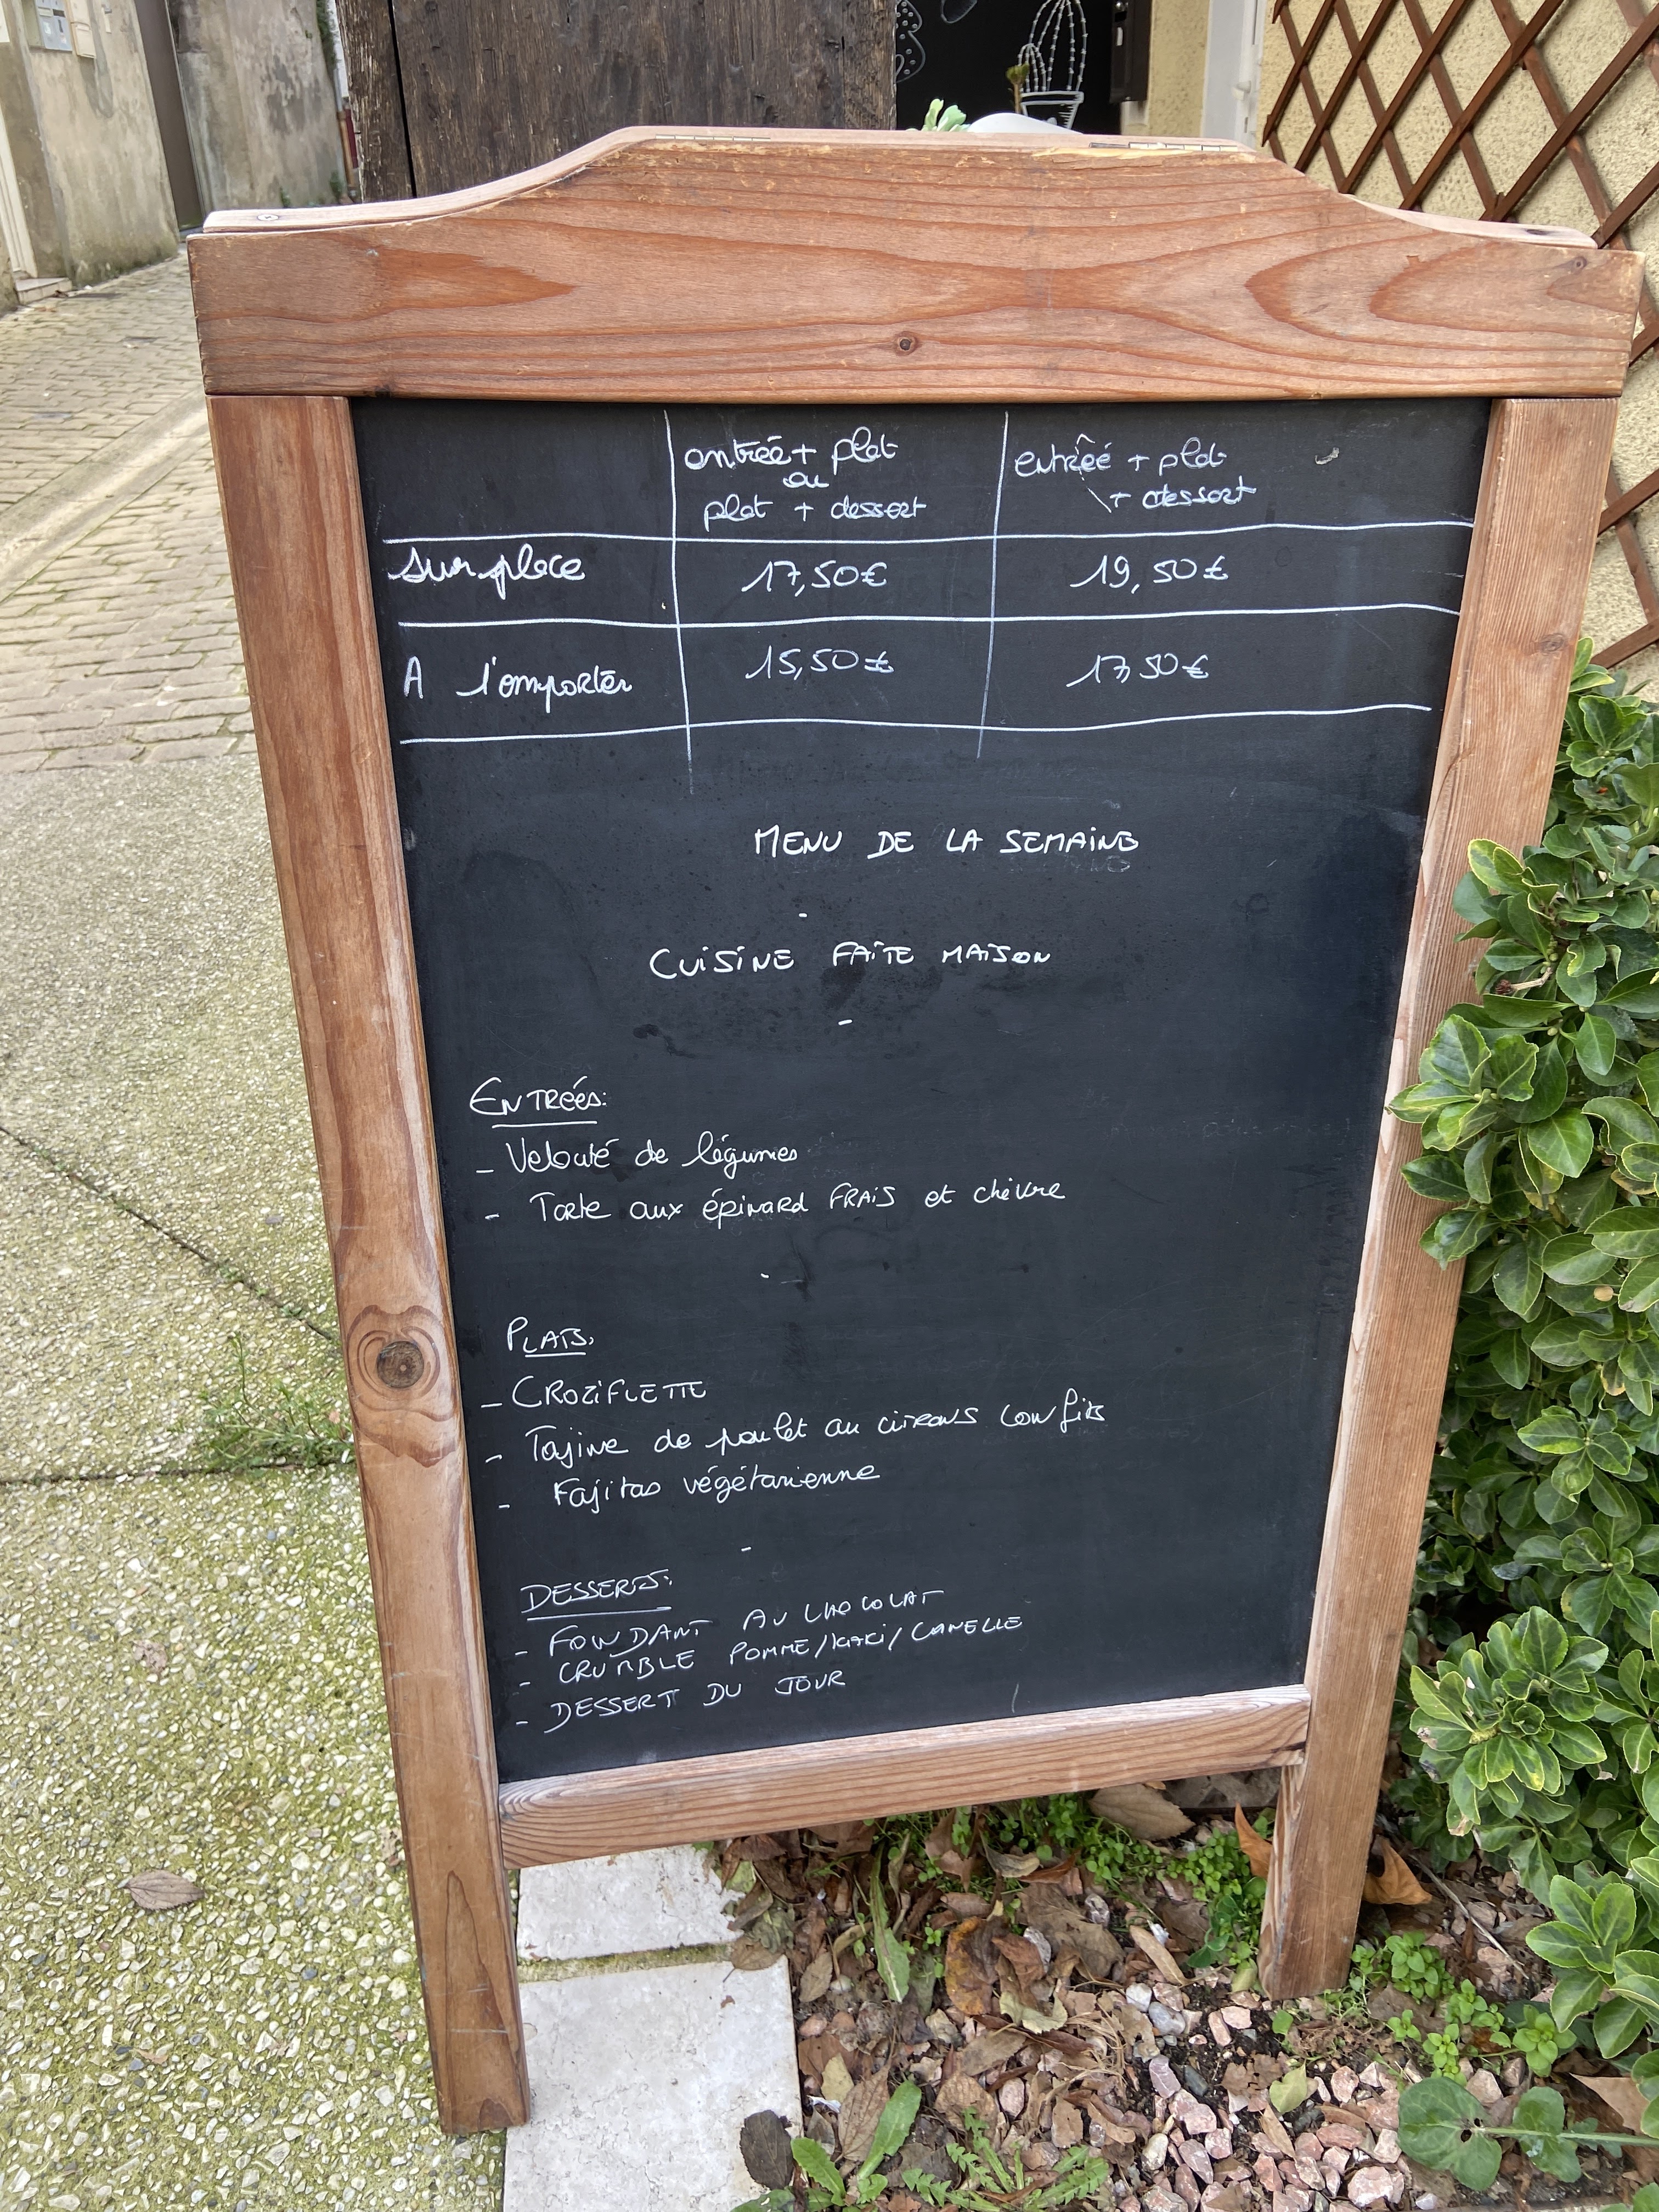 entrée + plat
ou
plat + dessert
entrêé + plat
+ dessert
Sur place 17,50€ 19,50€
A l'emporter 15,50€ 17,50€
MENU DE LA SEMAINE
-
CUISINE FAITE MAISON
-
ENTRÉES:
- Velouté de légumes
- Tarte aux épinard FRAIS et chèvre
-
PLATS:
- CROZIFLETTE
- Tajine de poulet au citrons confits
- Fajitas végétarienne
-
DESSERTS:
- FONDANT AU CHOCOLAT
- CRUMBLE POMME/KAKI/CANELLE
- DESSERT DU JOUR